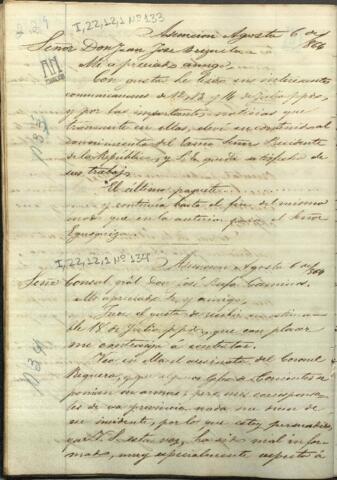 I, 22, 12, 1 Nº 133
Asuncion Agosto 6 de 1864
Señor Don Juan José Brizuela
Mi apreciado amigo,
Con gusto he leido sus interesantes
comunicaciones de 12, 13 y 14 de Julio ppdo,
y por las importantes noticias que
transmite en ellas, elevé en
conocimiento del Exmo Señor Presidente
de la Republica, y S. E. queda satisfecho de
sus trabajos.
El último paquete
y continúa hasta el fin del mismo
modo que en la anterior para el Señor
Egusquiza.
I, 22, 12, 1 Nº 134
Asuncion Agosto 6 de 1864
Señor Consul gral Don José Rufo Caminos.
Mi apreciado Sr y amigo,
Tuve el gusto de recibir su estima-
ble 18 de Julio ppdo, que con placer
me contraigo á contestar.
Veo en ella el asesinato del Coronel
Reguera, y que algunos Gefes de Corrientes se
ponian en armas; pero mis corresponsa-
les de esa provincia nada me dicen de
ese incidente, por lo que estoy persuadido,
que V. S. esta vez, ha sido mal infor-
mado, muy especialmente respecto á